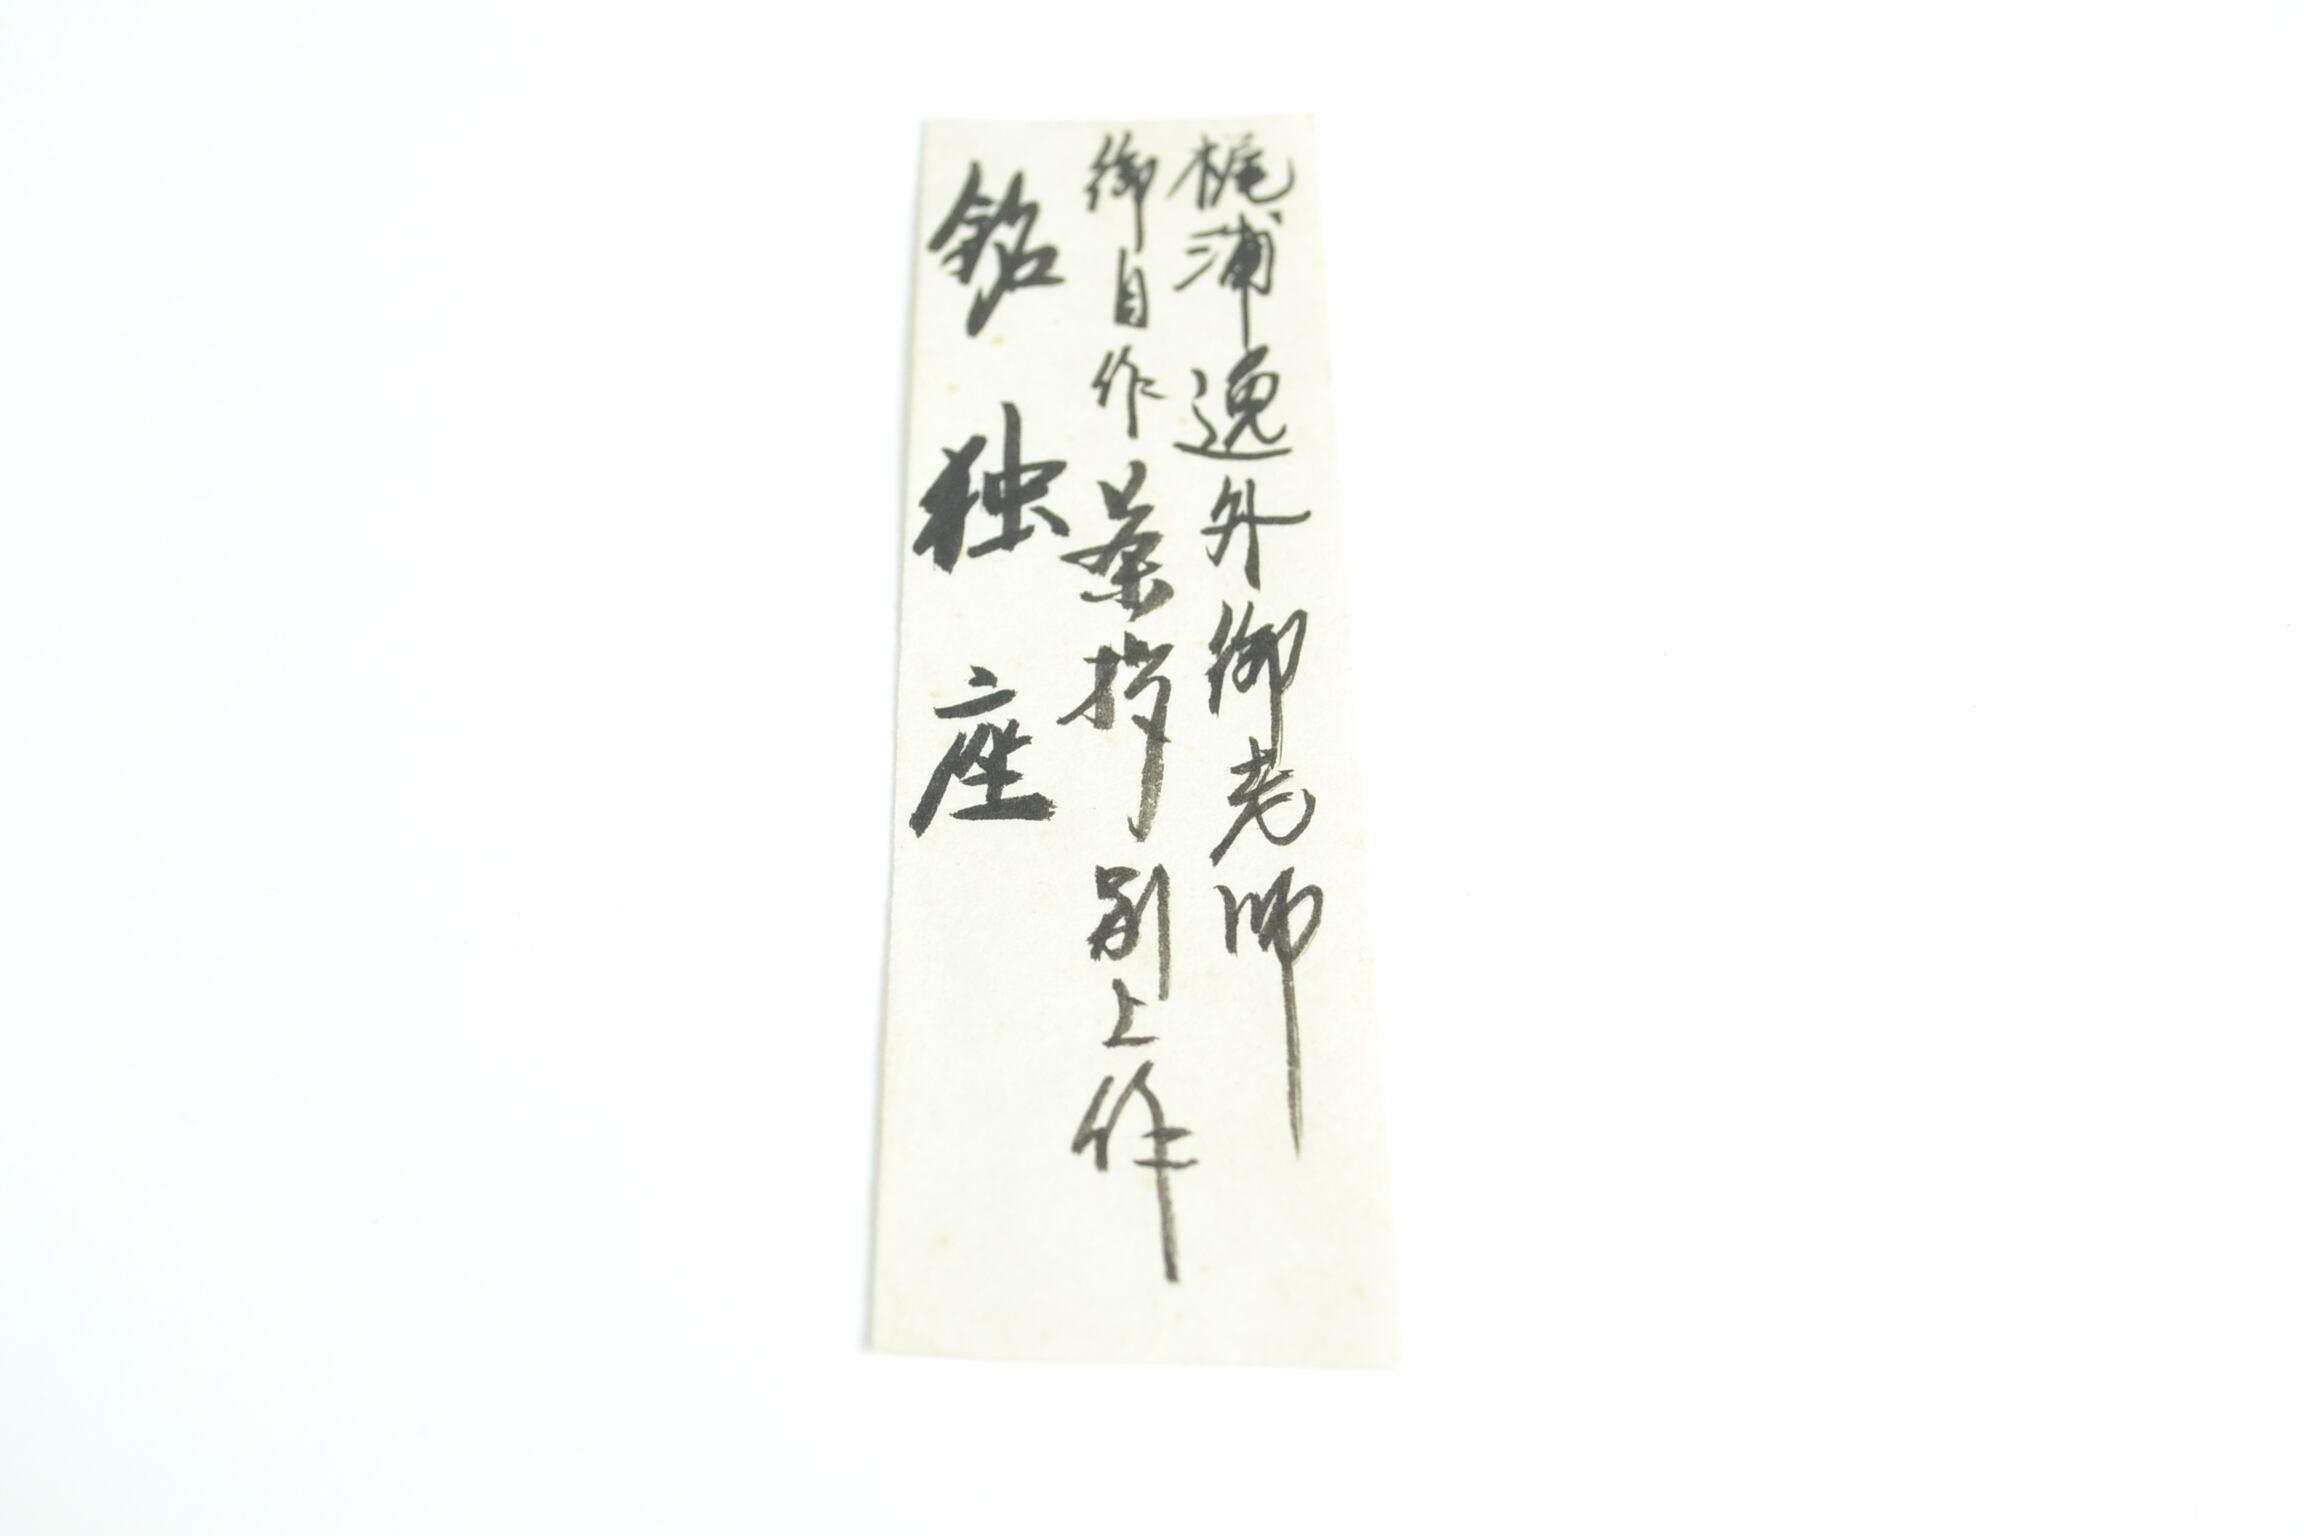 梶浦逸外御老師
御自作茶杓別上作
銘 独 座